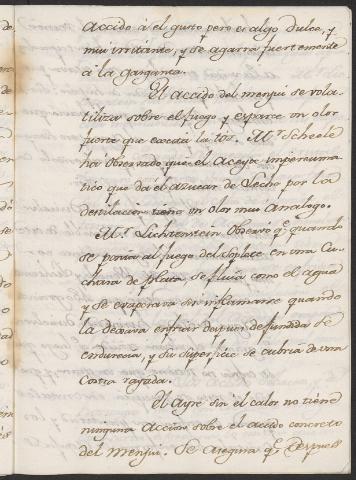 accido â el gusto pero es algo dulce, y
mui irritante, y se agarra fuertemente
â la garganta.
El accido del menjui se vola-
tiliza sobre el fuego y esparce un olor
fuerte que excita la tos. Mr. Scheele
ha observado que el Aceyte
tico que da el azucar de Leche por la
destilacion tiene un olor mui analogo.
Mr. Lichtenstein observo qe. quando
se ponia al fuego del Soplete en una Cu-
chara de plata se fluia como el agua
y se evaporava sin inflamarse quando
la dexava enfriar despues de fundida se
endurecia, y su superficie se cubria de una
Costra rayada.
El Ayre sin el calor no tiene
ninguna Accion sobre el accido concreto
del menjui. Se asegura qe. despues